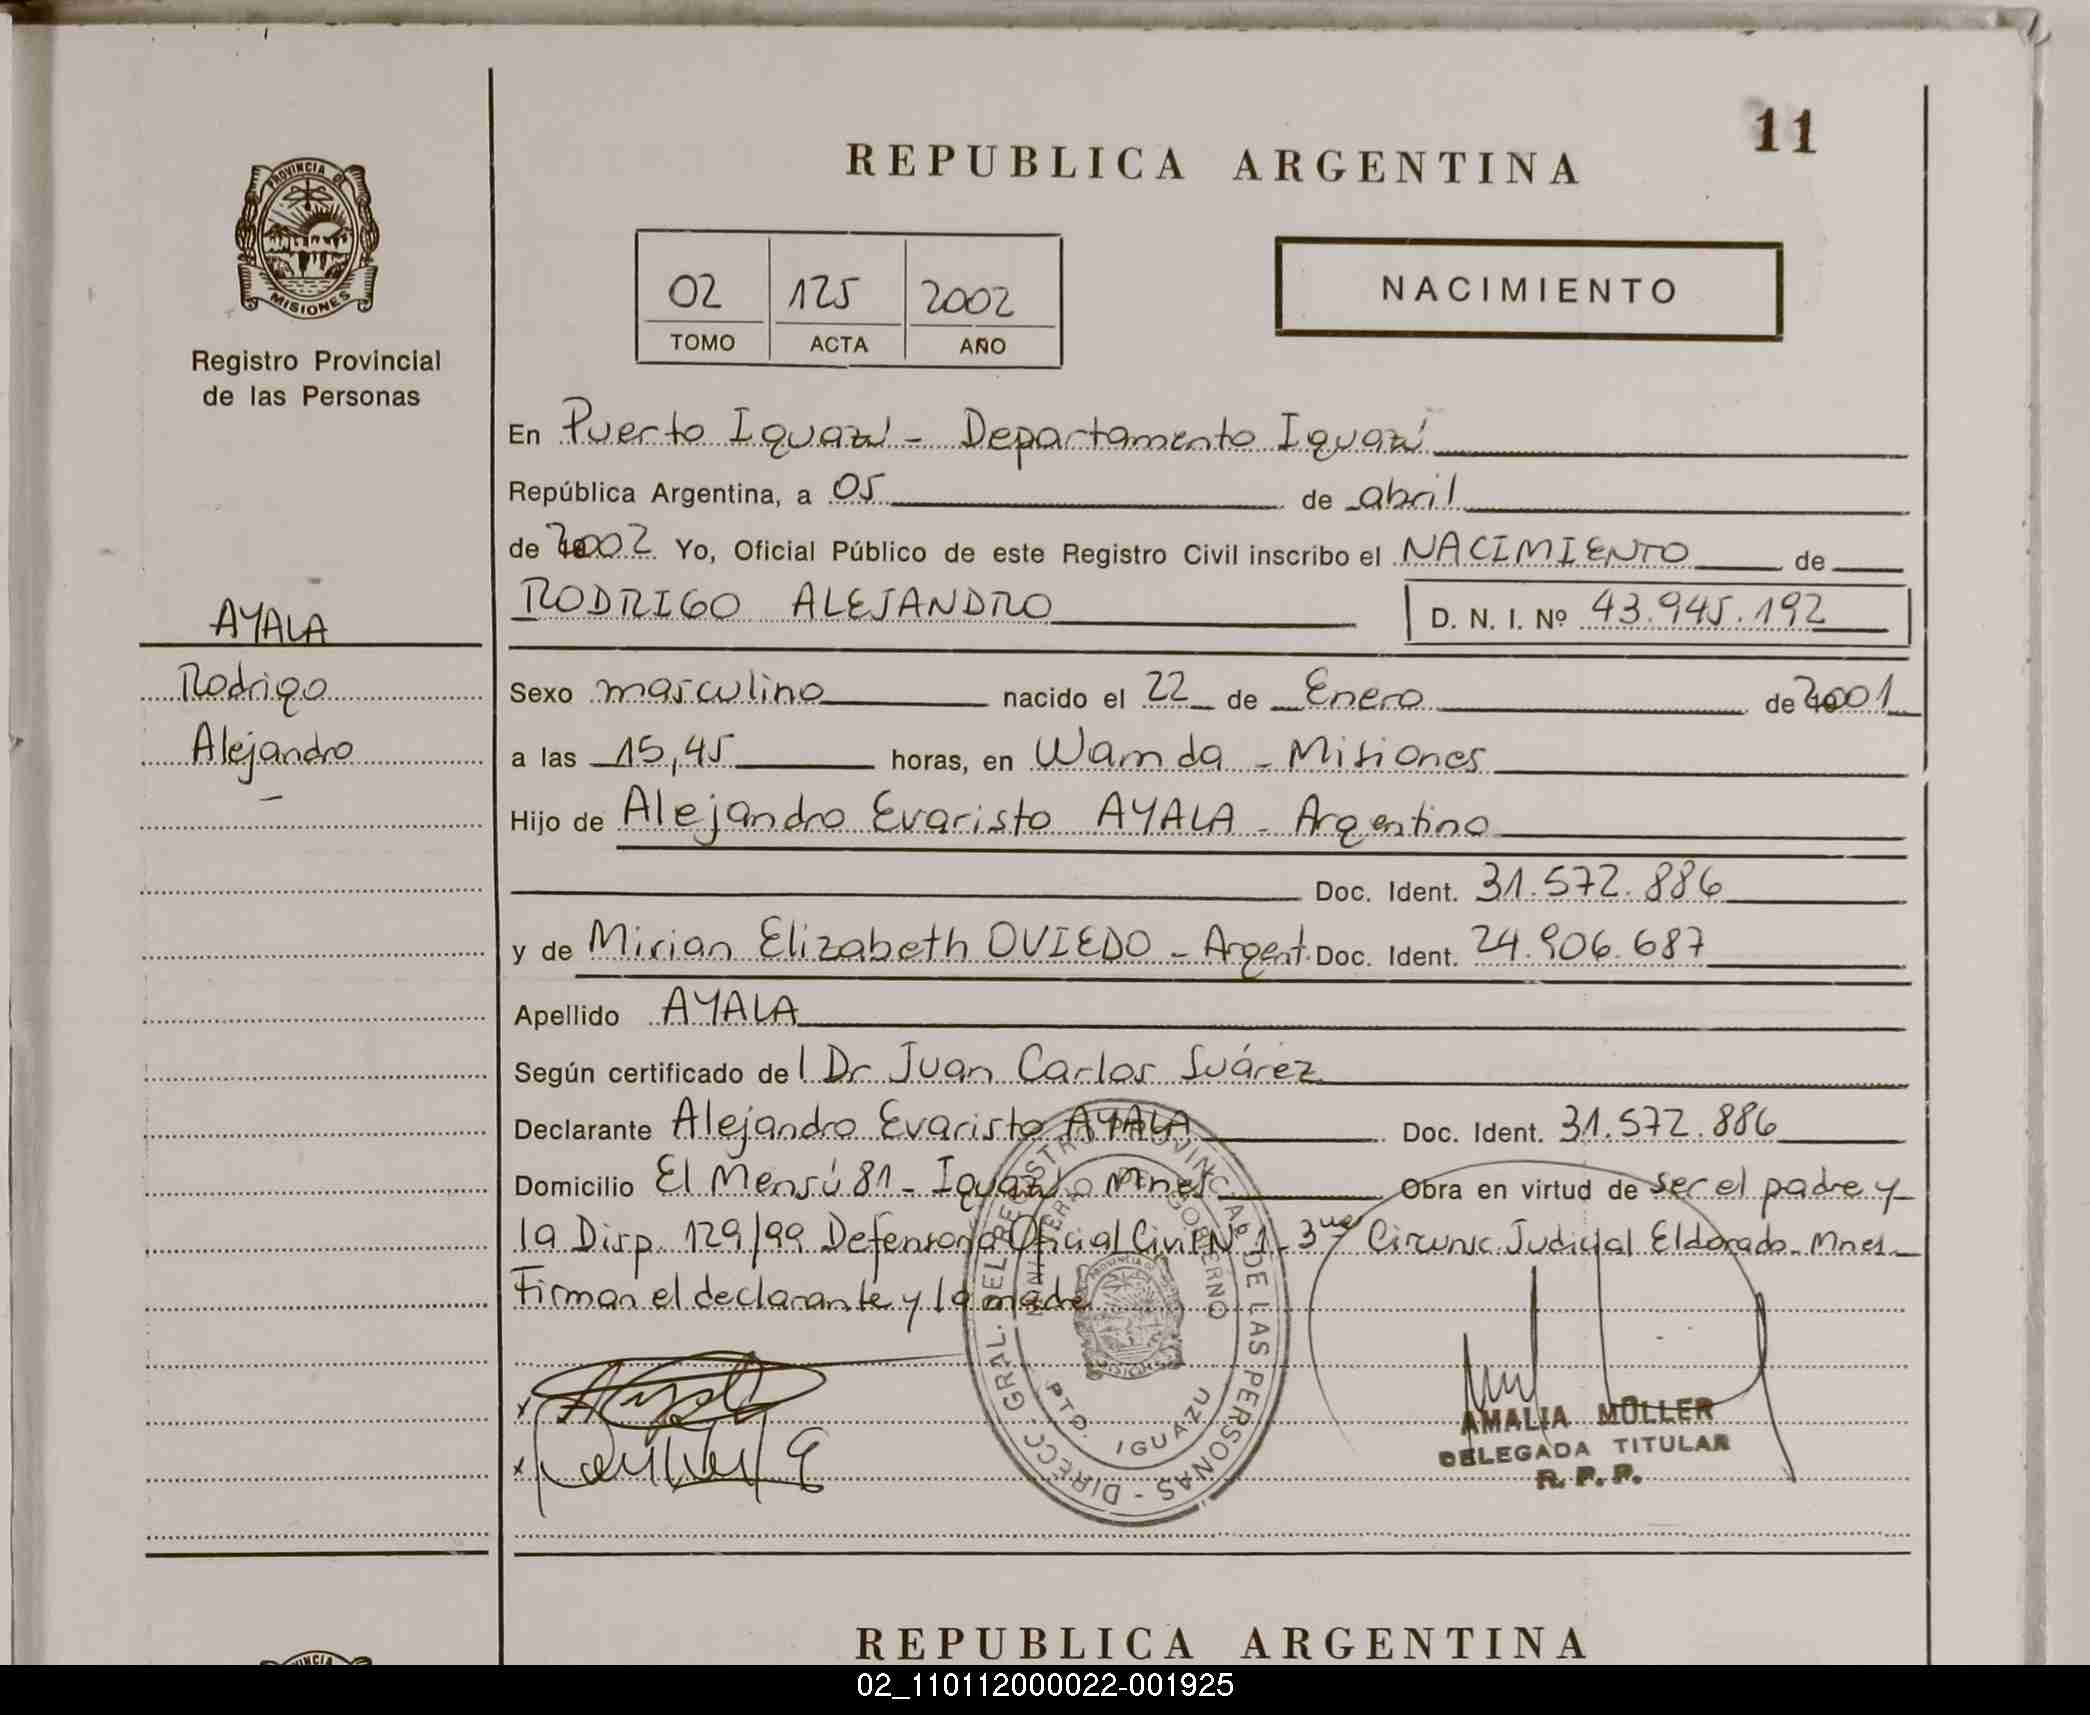 11
REPUBLICA ARGENTINA
PROVINCIA DE
MISIONES
Registro Provincial
de las Personas
02 125 2002
TOMO ACTA AÑO
NACIMIENTO
En Puerto Iguazú - Departamento Iguazú
República Argentina, a 05 de abril
de 2002 Yo, Oficial Público de este Registro Civil inscribo el NACIMIENTO de
RODRIGO ALEJANDRO D. N. I. Nº 43.945.192
AYALA
Rodrigo
Alejandro
Sexo masculino nacido el 22 de Enero de 2001
a las 15,45 horas, en Wanda - Misiones
Hijo de Alejandro Evaristo AYALA - Argentino
Doc. Ident. 31.572.886
y de Mirian Elizabeth OVIEDO - Argent. Doc. Ident. 24.906.687
Apellido AYALA
Según certificado del Dr Juan Carlos Suárez
Declarante Alejandro Evaristo AYALA Doc. Ident. 31.572.886
Domicilio El Mensú 81 - Iguazú Mnes Obra en virtud de ser el padre y
la Disp. 129/99 Defensoría Oficial Civil Nº 1 - 3ra Circunsc Judicial Eldorado - Mnes
Firman el declarante y la madre
DIRECC. GRAL. DEL REGISTRO PROVINCIAL DE LAS PERSONAS -
MINISTERIO DE GOBIERNO
PTO. IGUAZU
AMALIA MÜLLER
DELEGADA TITULAR
R. P. P.
REPUBLICA ARGENTINA
02_110112000022-001925